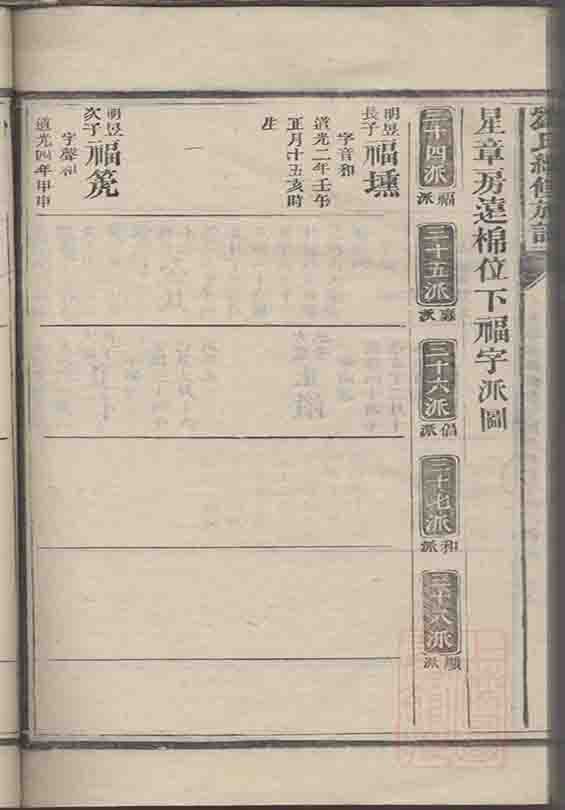 氏續修族譜
星章房遠棉位下福字派圖
三十四派
福派
三十五派
三十六派
侶派
三十七派
和派
三十八派
順派
明昱長子福壎
字音和
道光二年壬午
正月十五亥時
生
一
明昱次子福箎
字聲和
道光四年甲申